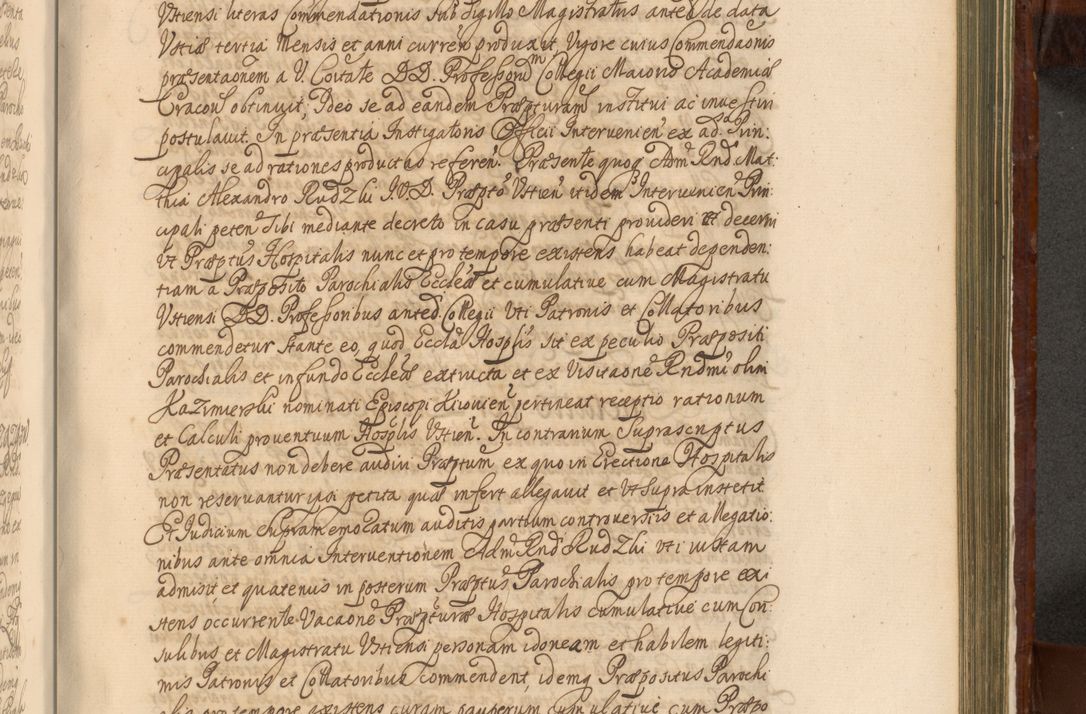 Ustiensi literas Commendationis sub Sigillo Magistratus anted de data
Ustiæ tertia Mensis et anni curren produxit, Vigore cuius Commendaonis
præsentaonem a V. Coïtate D.D. Professorum Collegii Maioris Academiæ
Cracou obtinuit, Ideo se ad eandem Præpturam institui ac investiri
postulavit. In præsentia Instigatoris Officii Intervenien ex ad. Prin:
cipalis se ad rationes productas referen. Præsente quoq Adm Rnd Mat:
thia Alexandro Rudzki I.V.D. Præpto Ustien itidem Intervenien Prin:
cipali peten sibi mediante decreto in casu præsenti provideri et decerni
ut Præptus Hospitalis nunc et pro tempore existens habeat degenden:
tiam a Præposito Parochialis Eccleæ et cumulative cum Magistratu
Ustiensi D.D. Professoribus anted. Collegii uti Patronis et Collatoribus
commendetur stante eo, quod Eccla Hosplis sit ex peculio Præpositi
Parochialis et in fundo Eccleæ extructa et ex Visitaone Rndmi olim
Kazimirski nominati Episcopi Kiovien pertineat receptio rationum
et Calculi proventuum Hosplis Ustien. In contrarium Suprascriptus
Præsentatus non debere audiri Præptum ex quo in Erectione Hospitalis
non reservantur ipsi petita quæ infert allegavit et ut supra institit
Et Judicium supramemoratum auditis partium controversiis et allegatio:
nibus ante omnia Interventionem Adm Rnd Rudzki uti iustam
admisit, et quatenus in posterum Præptus Parochialis pro tempore exi
stens occurrente Vacaone Præpturæ Hospitalis cumulative cum Con:
sulibus et Magistratu Ustiensi personam idoneam et habilem legiti:
mis Patronis et Collatoribus commendent, idemq Præpositus Parochi
alis pro tempore existens curam pauperum cumulative cum Præpo